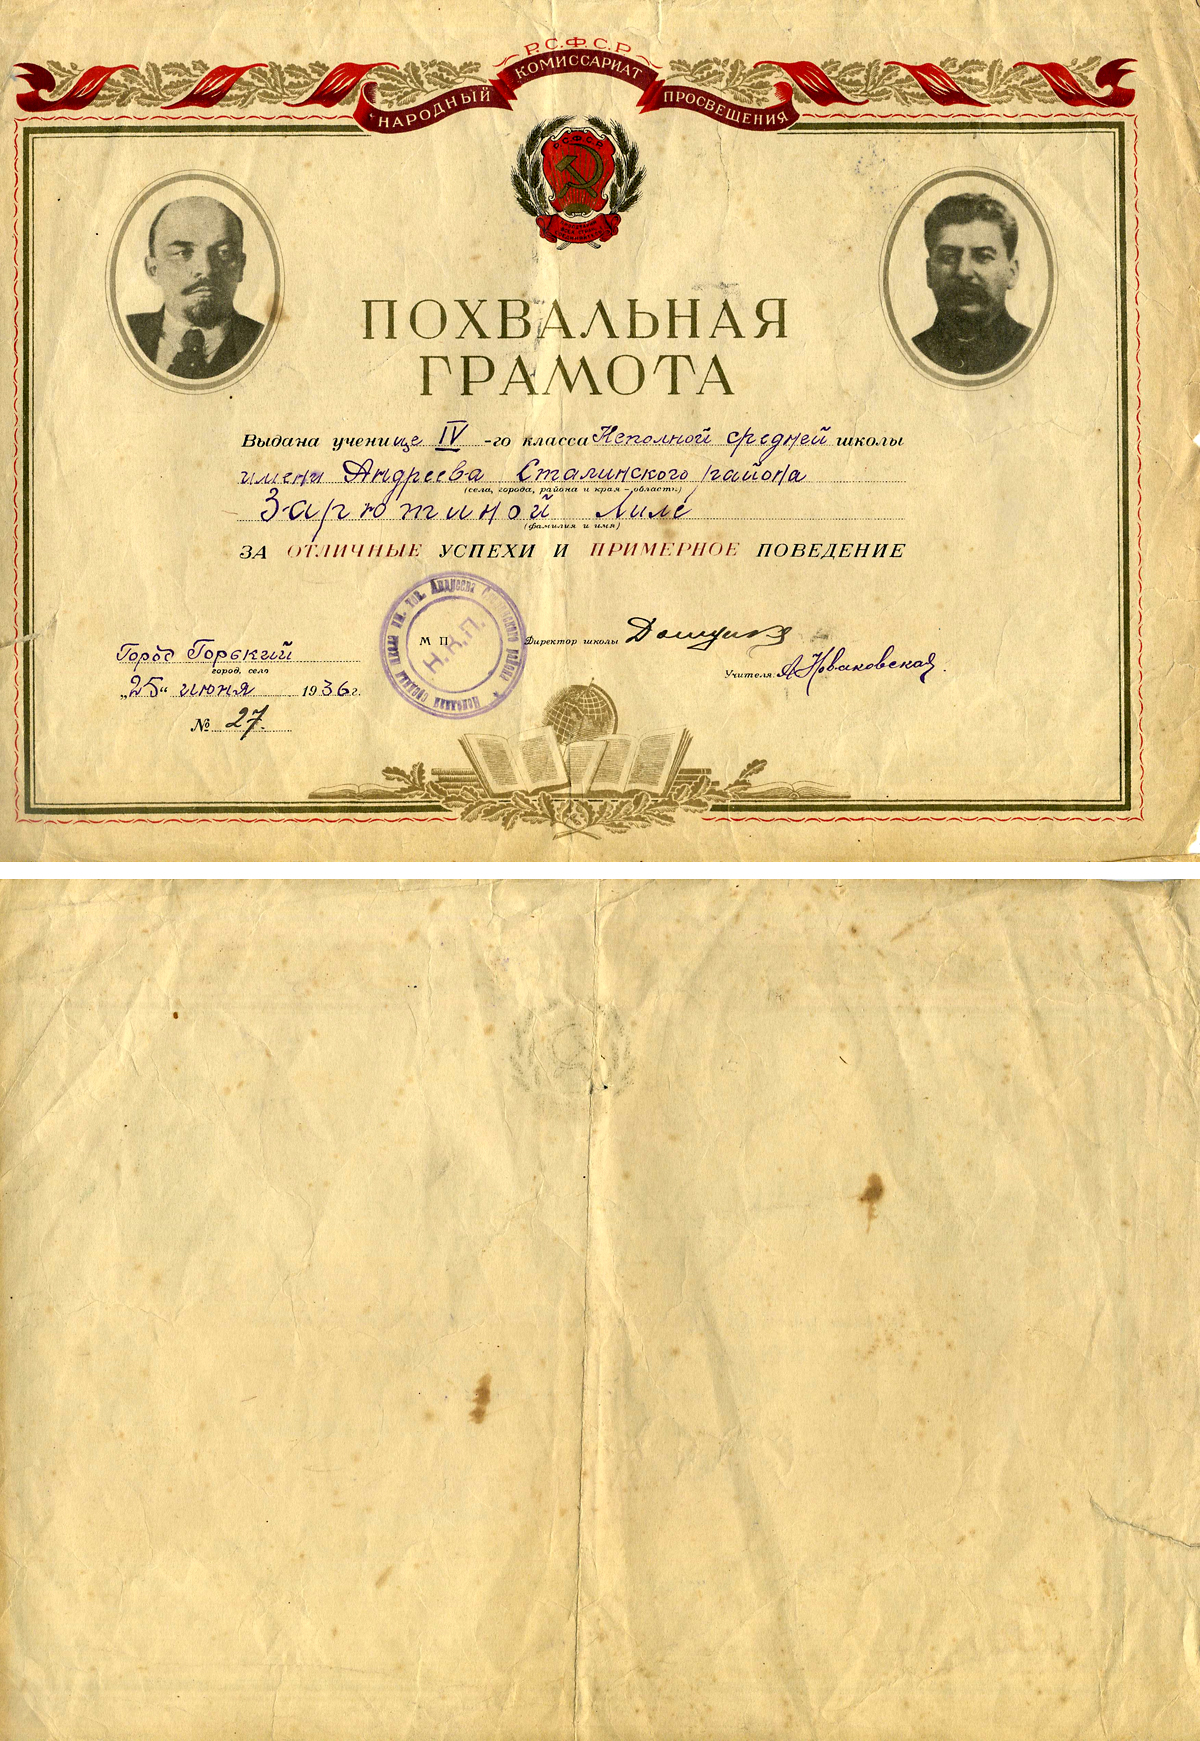 Р.С.Ф.С.Р
НАРОДНЫЙ КОМИССАРИАТ ПРОСВЕЩЕНИЯ
Р.С.Ф.С.Р.
ПОХВАЛЬНАЯ
ГРАМОТА
Выдана ученице IV-го класса Неполной средней школы
имени Андреева Сталинского района
(села, города, района и края – области.)
Зарютиной Лиле
(фамилия и имя)
ЗА ОТЛИЧНЫЕ УСПЕХИ И ПРИМЕРНОЕ ПОВЕДЕНИЕ
М П
Н.К.П.
Неполная средняя школа им. тов. Андреева Сталинского района
Директор школы
Город Горький
город, село
Учителя: А Новаковская.
„25“ июня 1936 г.
№ 27.